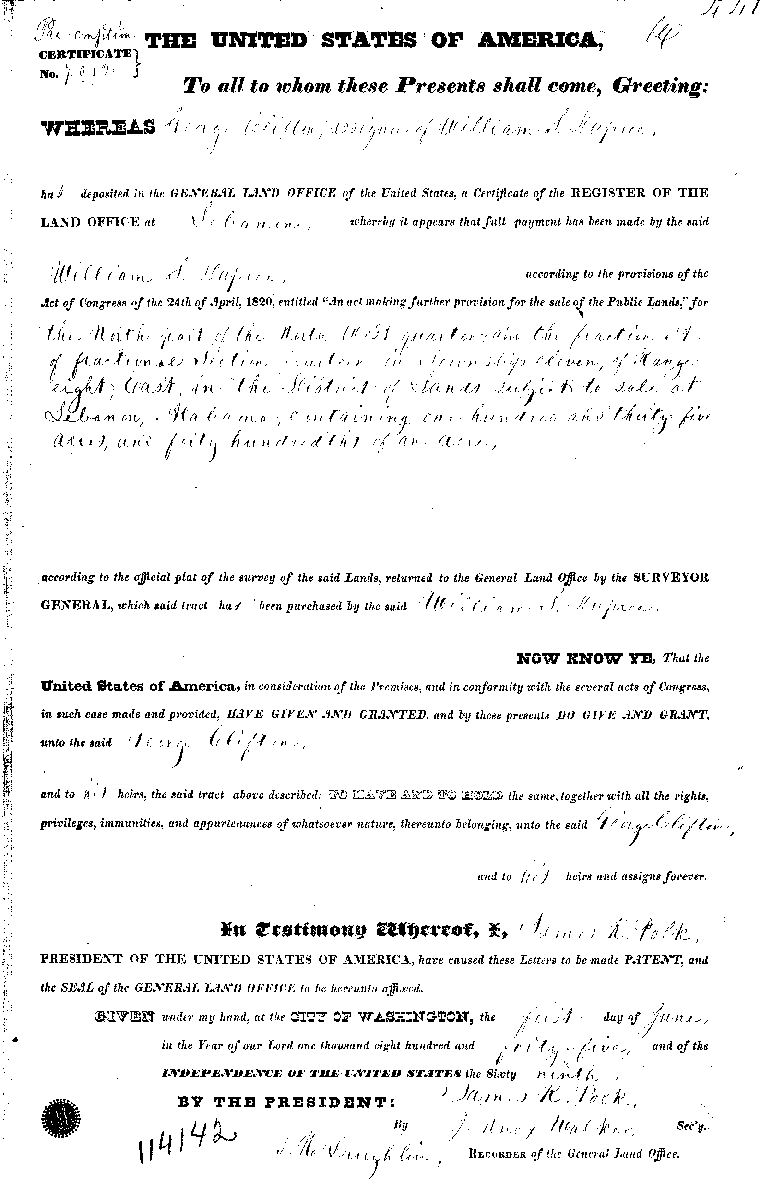 441
Pre emption
CERTIFICATE THE UNITED STATES OF AMERICA,
No.
To all to whom these Presents shall come, Greeting:
WHEREAS George Clifton, assignee of William S.
has deposited in the GENERAL LAND OFFICE of the United States, a Certificate of the REGISTER OF THE
LAND OFFICE at Lebanon, whereby it appears that full payment has been made by the said
William S. according to the provisions of the
Act of Congress of the 24th of April, 1820, entitled "An act making further provision for the sale of the Public Lands," for
the North part of the North West quarter, in the fraction A
of fractional Section in Township eleven, of Range
eight, East, in the District of Lands subject to sale at
Lebanon, Alabama, containing one hundred and thirty five
acres, and forty hundredths of an acre,
according to the official plat of the survey of the said Lands, returned to the General Land Office by the SURVEYOR
GENERAL, which said tract has been purchased by the said William S.
NOW KNOW YE, That the
United States of America, in consideration of the Premises, and in conformity with the several acts of Congress,
in such case made and provided, HAVE GIVEN AND GRANTED, and by these presents DO GIVE AND GRANT,
unto the said George Clifton,
and to his heirs, the said tract above described: TO HAVE AND TO HOLD the same, together with all the rights,
privileges, immunities, and appurtenances of whatsoever nature, thereunto belonging, unto the said George Clifton,
and to his heirs and assigns forever.
In Testimony Whereof, I, James K. Polk,
PRESIDENT OF THE UNITED STATES OF AMERICA, have caused these Letters to be made PATENT, and
the SEAL of the GENERAL LAND OFFICE to be hereunto affixed.
GIVEN under my hand, at the CITY OF WASHINGTON, the first day of June,
in the Year of our Lord one thousand eight hundred and forty-five, and of the
INDEPENDENCE OF THE UNITED STATES the Sixty ninth.
BY THE PRESIDENT: James K. Polk,
By J. Knox Walker, Sec'y.
114142 S. H. Laughlin, RECORDER of the General Land Office.